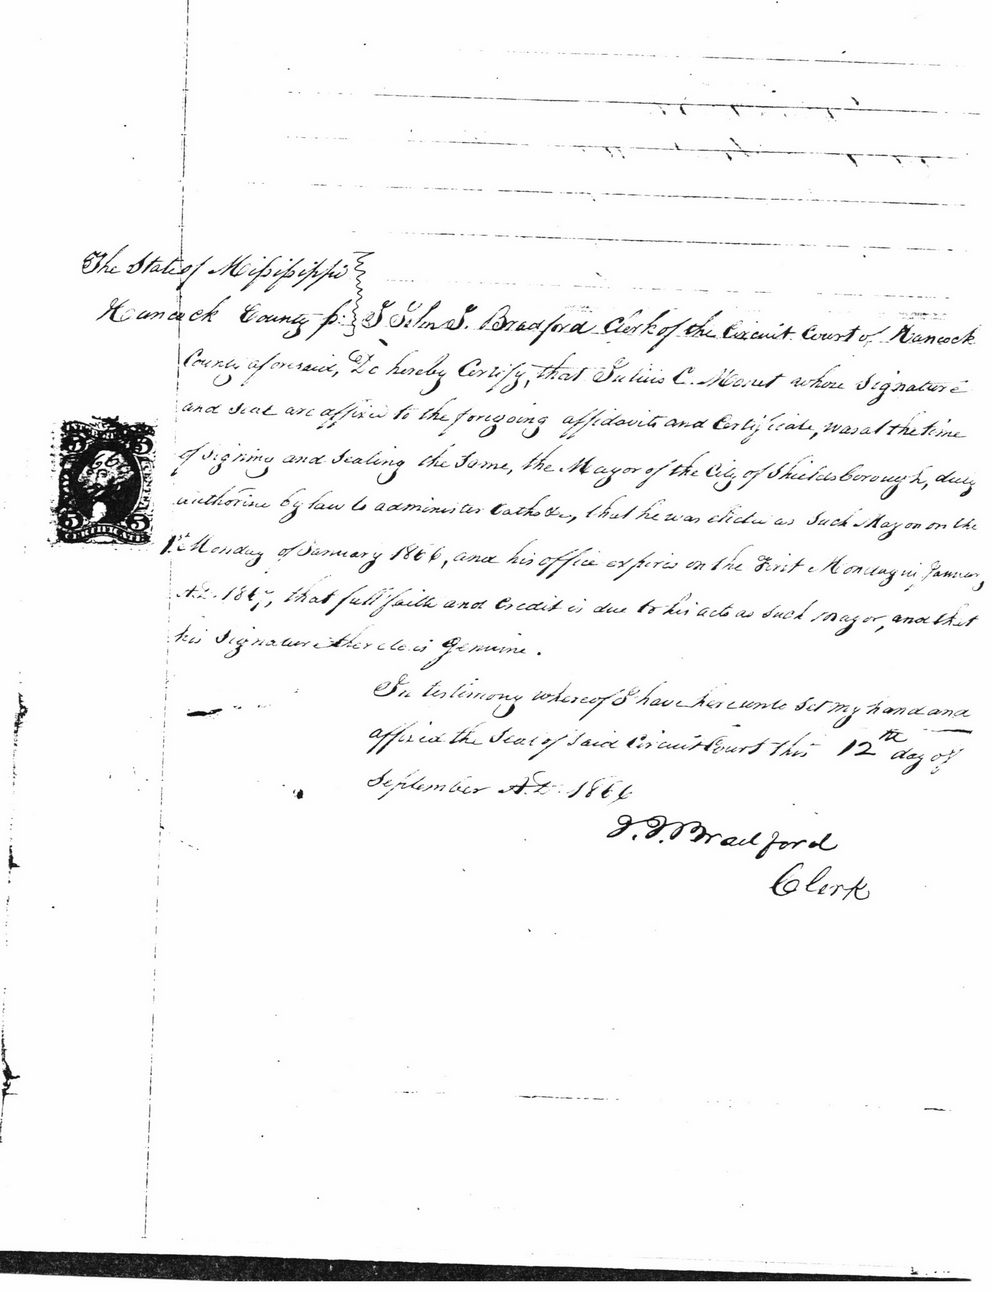 The State of Mississippi
Hancock County ss. I John J. Bradford Clerk of the Circuit Court of Hancock
County aforesaid, Do hereby Certify, that Julius C. Monet whose Signature
and Seal are affixed to the foregoing affidavits and Certificate, was at the time
of signing and sealing the same, the Mayor of the City of Shieldsborough, duly
authorise by law to administer oaths &c, that he was elected as Such Mayor on the
1st Monday of January 1866, and his office expires on the First Monday in January
A.D. 1867, that full faith and credit is due to his acts as such mayor, and that
his signature thereto is Genuine.
In testimony whereof I have hereunto set my hand and
affixed the Seal of said Circuit Court this 12th day of
September A.D. 1866
J. J. Bradford
Clerk
5 5
5 5